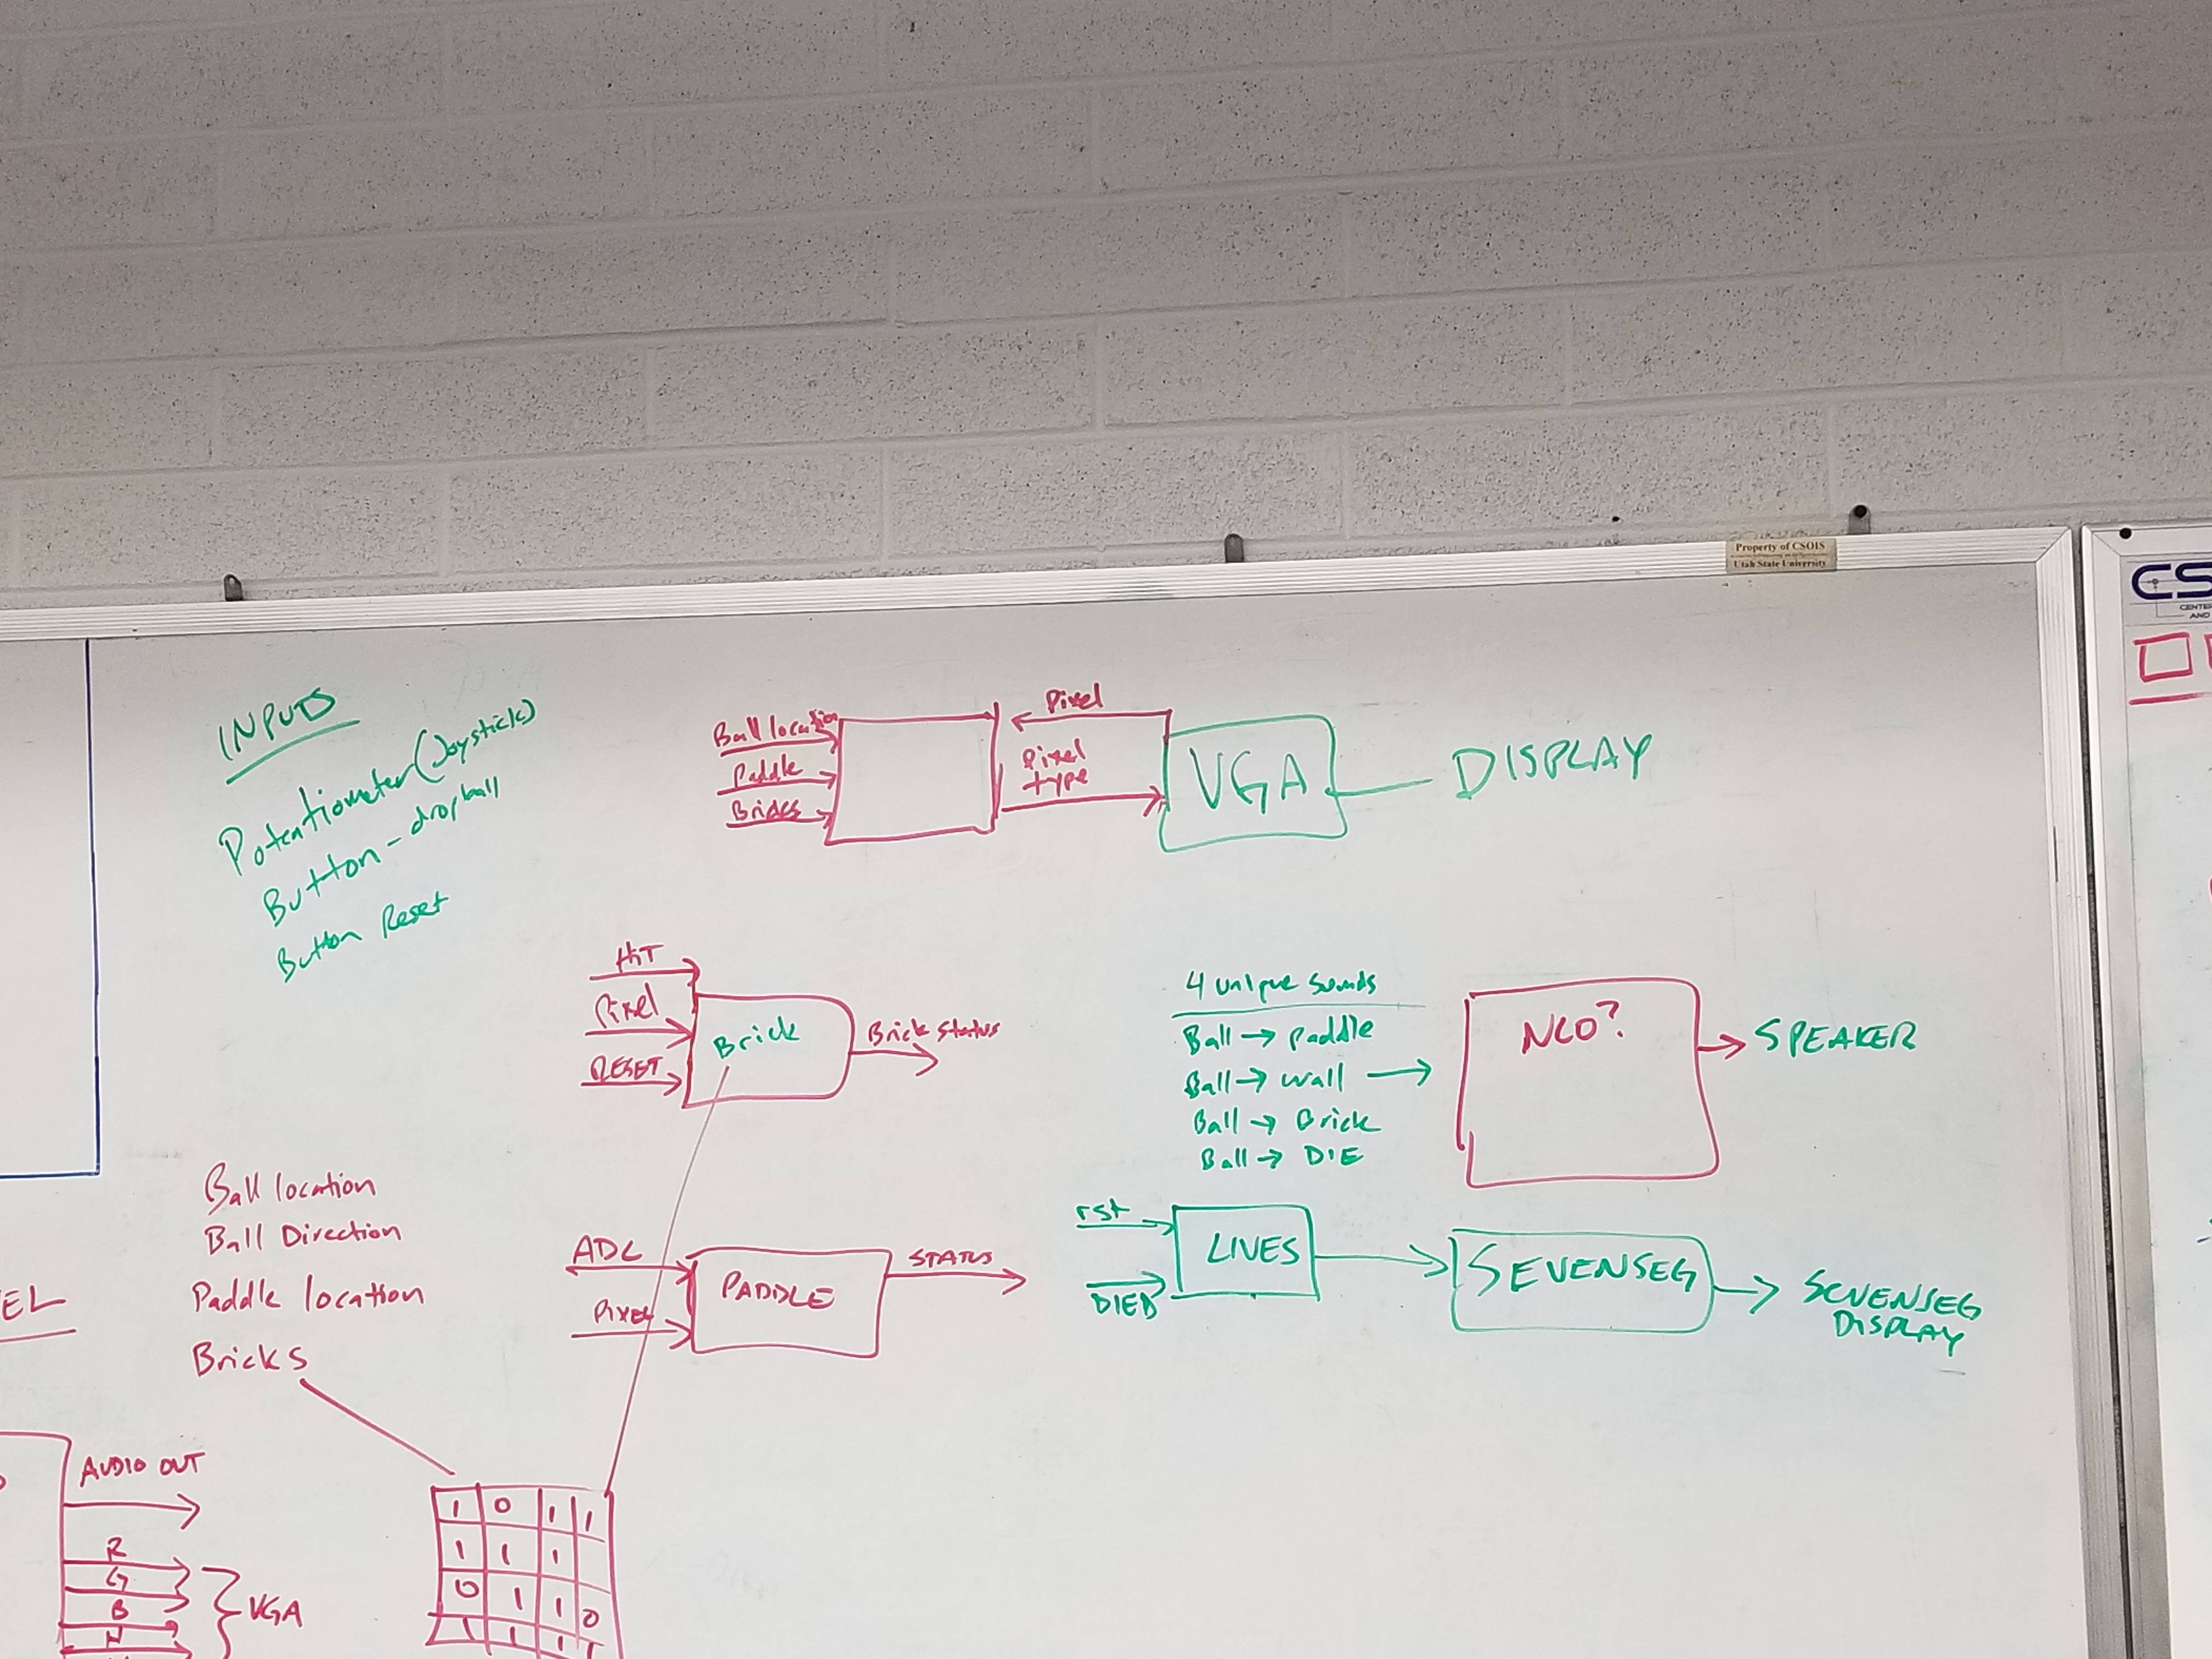 Property of CSOIS
Utah State University
CS
CENTE
AND
INPUTS
Potentiometer (Joystick)
Button - drop ball
Button Reset
Ball location
Paddle
Bricks
Pixel
Pixel
type
VGA
DISPLAY
HIT
Pixel
RESET
Brick
Brick status
4 unique sounds
Ball → paddle
Ball → wall →
Ball → Brick
Ball → DIE
NCO?
SPEAKER
Ball location
Ball Direction
Paddle location
Bricks
ADC
Pixel
PADDLE
STATUS
rst
DIED
LIVES
SEVENSEG
SEVENSEG
DISPLAY
EL
AUDIO OUT
R
G
B
H
VGA
1 0 1 1
1 1 1
0 1 1 0
1 1 1 1